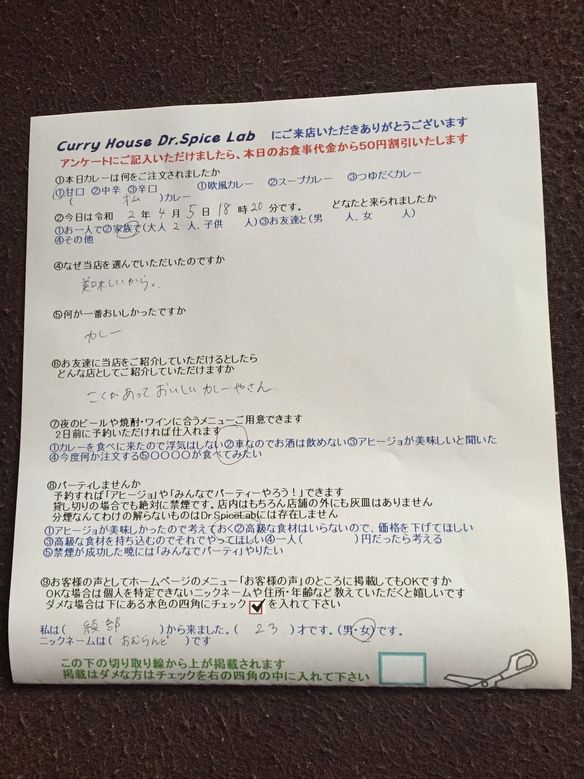 Curry House Dr.Spice Lab にご来店いただきありがとうございます
アンケートにご記入いただけましたら、本日のお食事代金から50円割引いたします
①本日カレーは何をご注文されましたか
①甘口 ②中辛 ③辛口 ①欧風カレー ②スープカレー ③つゆだくカレー
( )カレー
②今日は令和 2 年 4 月 5 日 18 時 20 分です。 どなたと来られましたか
①お一人で②家族で(大人 2 人、子供 人)③お友達と(男 人、女 人)
④その他
④なぜ当店を選んでいただいたのですか
美味しいから。
⑤何が一番おいしかったですか
カレー
⑥お友達に当店をご紹介していただけるとしたら
どんな店としてご紹介していただけますか
こくがあっておいしいカレーやさん。
⑦夜のビールや焼酎・ワインに合うメニューご用意できます
2日前に予約いただければ仕入れます
①カレーを食べに来たので浮気はしない②車なのでお酒は飲めない③アヒージョが美味しいと聞いた
④今度何か注文する⑤〇〇〇〇が食べてみたい
⑧パーティしませんか
予約すれば「アヒージョ」や「みんなでパーティーやろう!」できます
貸し切りの場合でも絶対に禁煙です。店内はもちろん店舗の外にも灰皿はありません
分煙なんてわけの解らないものはDr.SpiceLabには存在しません
①アヒージョが美味しかったので考えておく②高級な食材はいらないので、価格を下げてほしい
③高級な食材を持ち込むのでそれでやってほしい④一人( )円だったら考える
⑤禁煙が成功した暁には「みんなでパーティ」やりたい
⑨お客様の声としてホームページのメニュー「お客様の声」のところに掲載してもOKですか
OKな場合は個人を特定できないニックネームや住所・年齢など教えていただくと嬉しいです
ダメな場合は下にある水色の四角にチェック を入れて下さい
私は( 綾部 )から来ました。( 23 )才です。(男・女)です。
ニックネームは( おむらんど )です
この下の切り取り線から上が掲載されます
掲載はダメな方はチェックを右の四角の中に入れて下さい